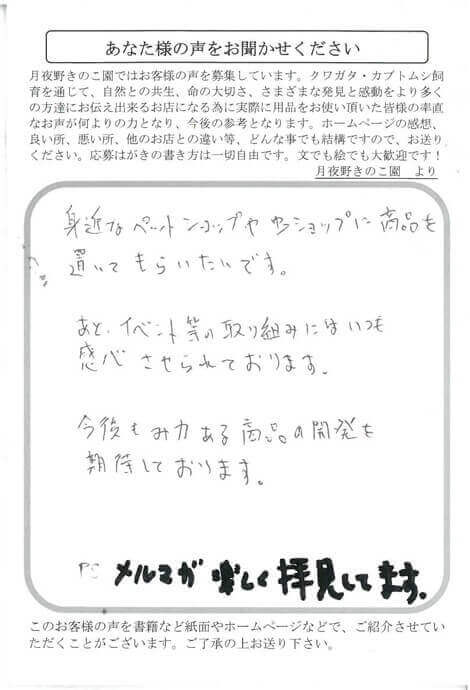 あなた様の声をお聞かせください
月夜野きのこ園ではお客様の声を募集しています。クワガタ・カブトムシ飼
育を通じて、自然との共生、命の大切さ、さまざまな発見と感動をより多く
の方達にお伝え出来るお店になる為に実際に用品をお使い頂いた皆様の率直
なお声が何よりの力となり、今後の参考となります。ホームページの感想、
良い所、悪い所、他のお店との違い等、どんな事でも結構ですので、お送り
ください。応募はがきの書き方は一切自由です。文でも絵でも大歓迎です！
月夜野きのこ園　より
身近な ペットショップや 虫ショップに 商品を
置いて もらいたいです。
あと、イベント等の取り組みにはいつも
感心 させられております。
今後も み力 ある 商品の開発を
期待しております。
PS メルマガ 楽しく 拝見してます。
このお客様の声を書籍など紙面やホームページなどで、ご紹介させてい
ただくことがございます。ご了承の上お送り下さい。